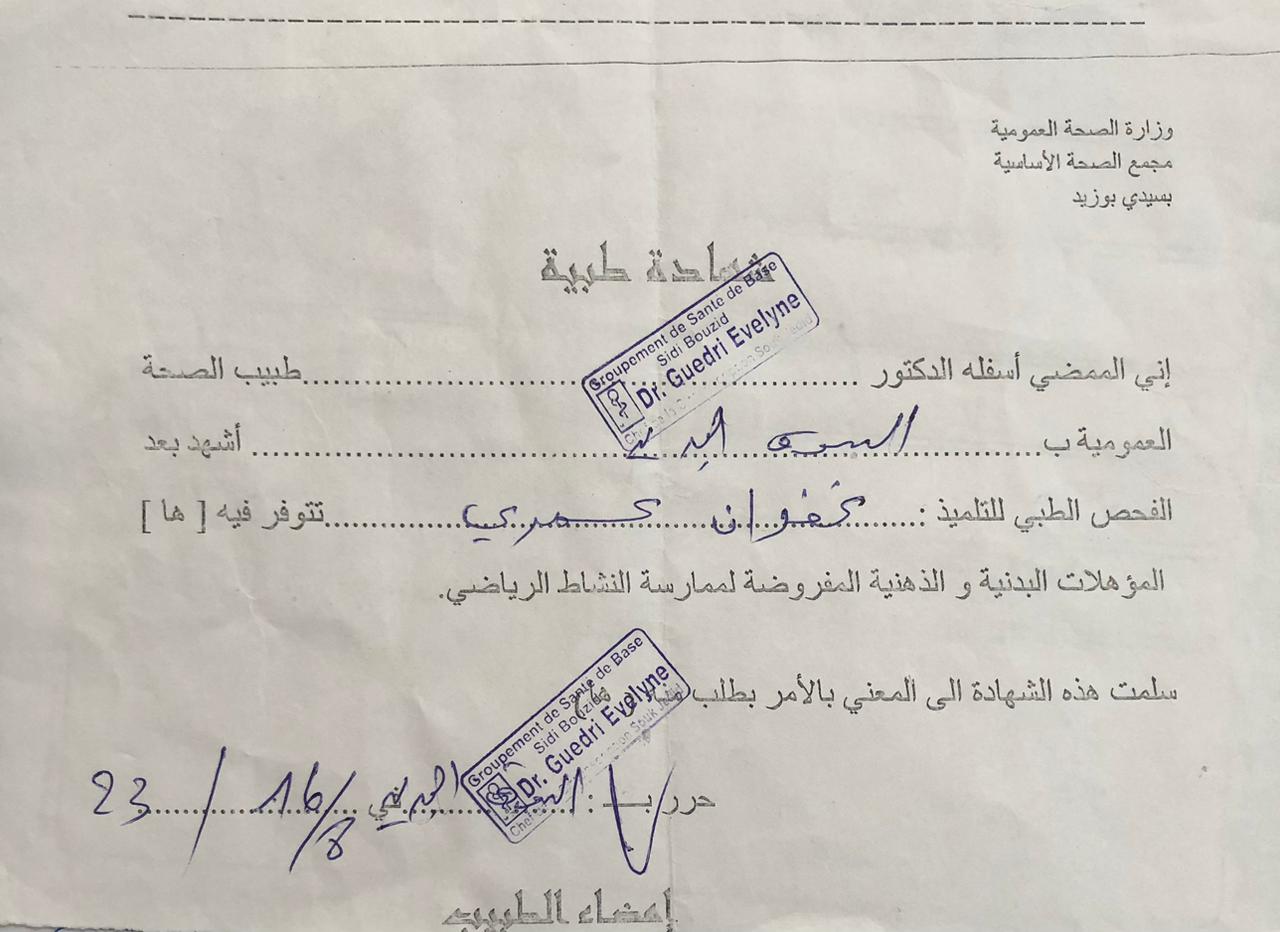 وزارة الصحة العمومية
مجمع الصحة الأساسية
بسيدي بوزيد
شهادة طبية
Groupement de Santé de Base
Sidi Bouzid
Dr. Guedri Evelyne
إني الممضي أسفله الدكتور ........................ طبيب الصحة
العمومية ب........................ أشهد بعد
الفحص الطبي للتلميذ :........................تتوفر فيه [ ها ]
المؤهلات البدنية و الذهنية المفروضة لممارسة النشاط الرياضي.
سلمت هذه الشهادة الى المعني بالأمر بطلب
Groupement de Santé de Base
Sidi Bouzid
Dr. Guedri Evelyne
حرر بـ : في 16/8/23
إمضاء الطبيب